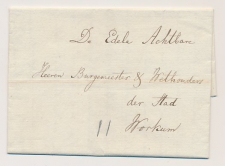 De Edele Achtbare
Heeren Burgemeister & Wethouders
der Stad
Workum
11